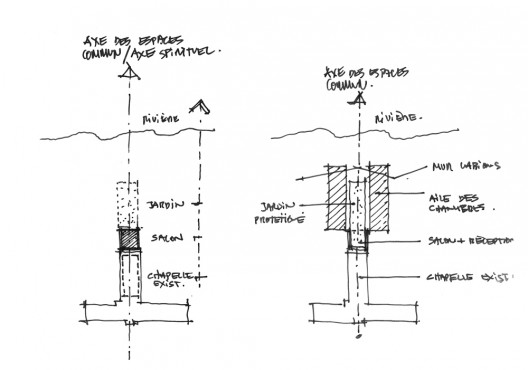 AXE DES ESPACES
COMMUN / AXE SPIRITUEL.
RIVIÈRE
JARDIN
SALON
CHAPELLE
EXIST.
AXE DES ESPACES
COMMUN.
RIVIÈRE.
MUR
JARDIN
PROTÉGÉ
AILE DES
CHAMBRES.
SALON + RÉCEPTION
CHAPELLE EXIST.